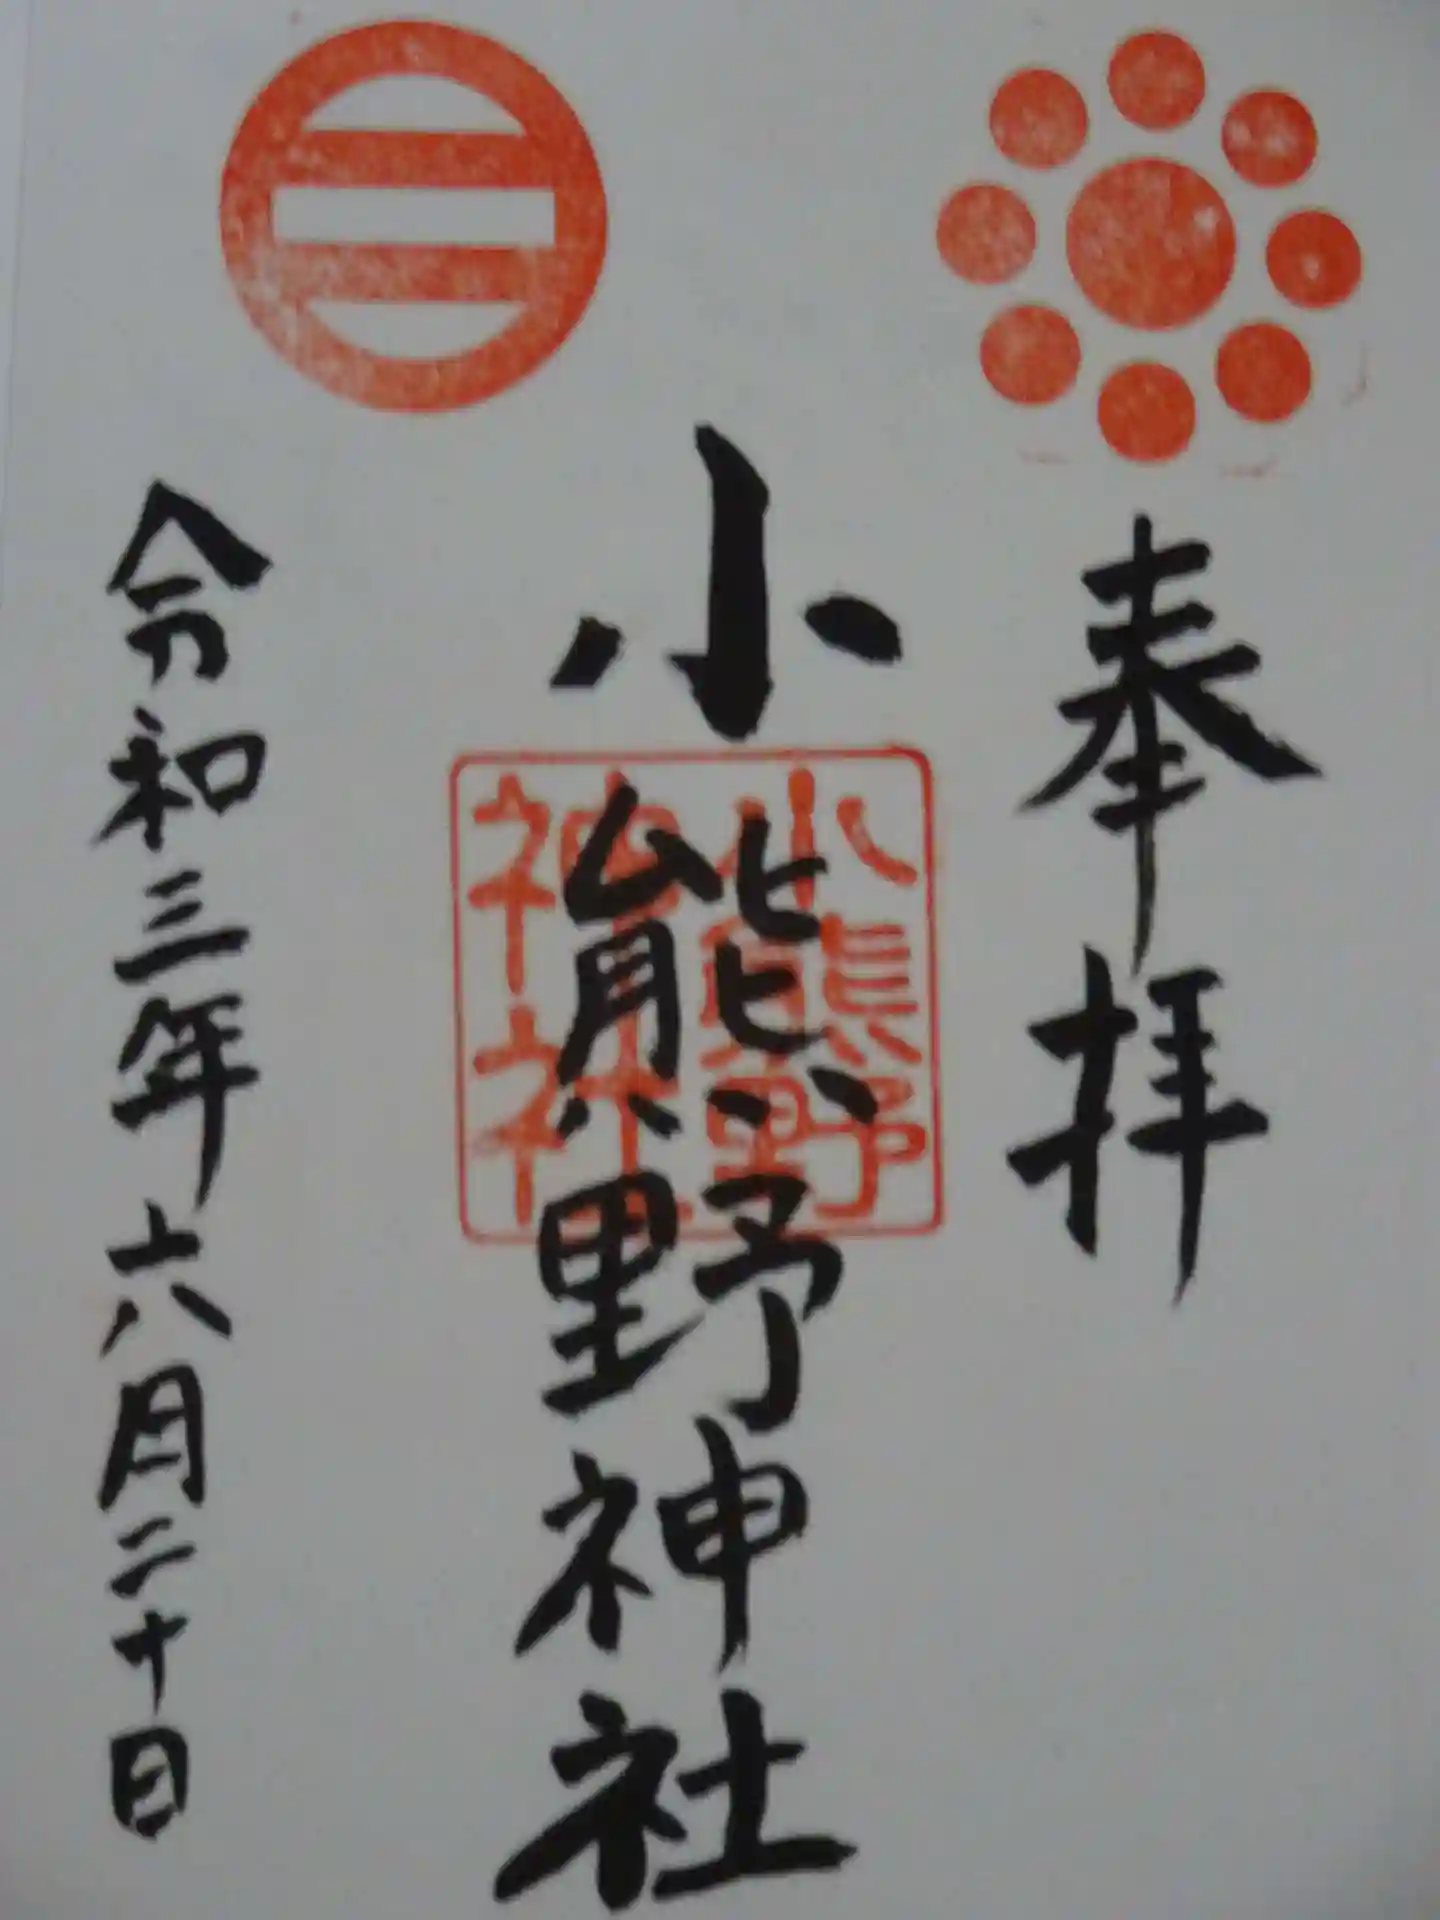 奉拝
小熊野神社
小熊野
神社
令和三年六月二十日